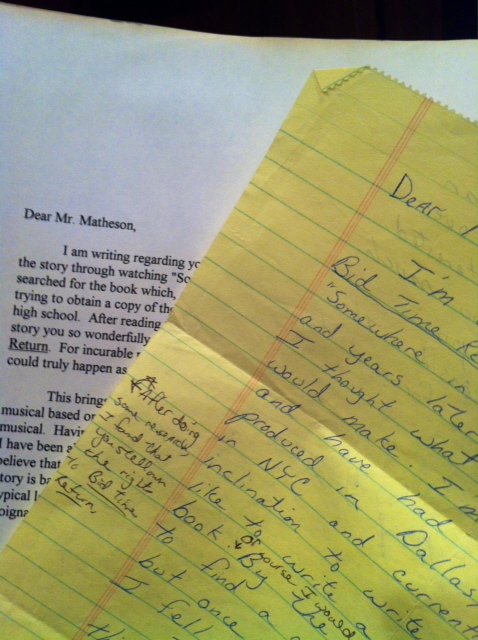 Dear Mr. Matheson,
I am writing regarding
the story through watching "So
searched for the book which,
trying to obtain a copy of the
high school. After reading
story you so wonderfully
Return. For incurable
could truly happen as
This bring
musical based on
musical. Havi
I have been a
believe that
tory is ba
ypical l
oigna
Dear
I'm
Bid Time Re
"Somewhere in
and years later
I thought what
would make. I
and have had
produced in Dallas,
in NYC and current
inclination to write
like to write a
book. By the
of course I would
to find a
but once
I fell
th
After doing
some research,
I find that
you still own
the right
to Bid Time
Return